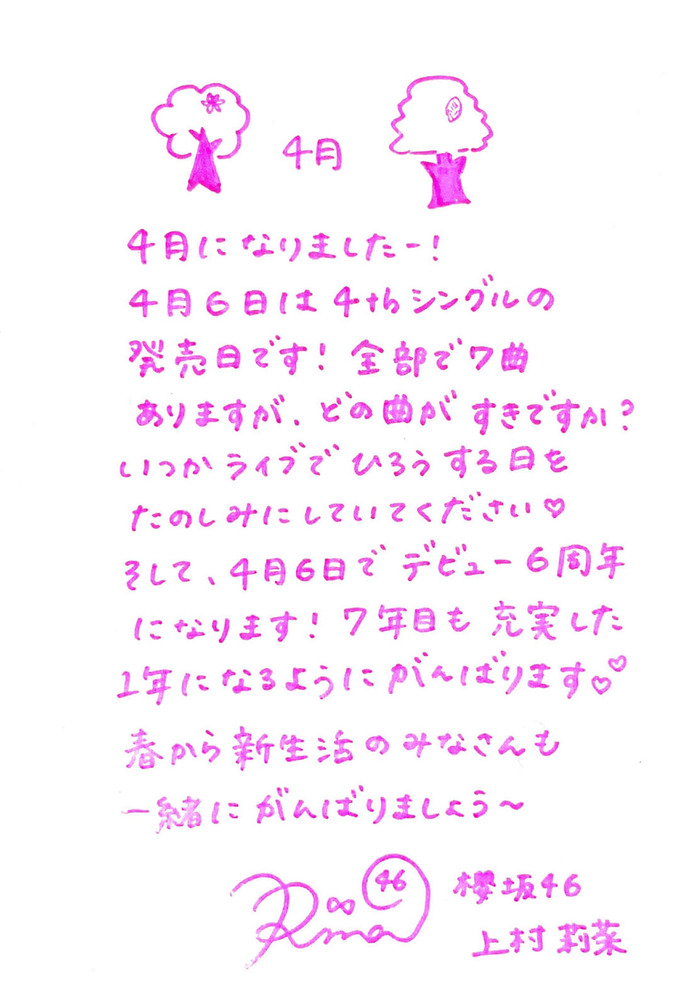 4月
4月になりましたー!
4月6日は4thシングルの
発売日です! 全部で7曲
ありますが、どの曲がすきですか?
いつかライブでひろうする日を
たのしみにしていてください♡
そして、4月6日でデビュー6周年
になります! 7年目も充実した
1年になるようにがんばります♡♡
春から新生活のみなさんも
一緒にがんばりましょう〜
46
Rina
櫻坂46
上村莉菜